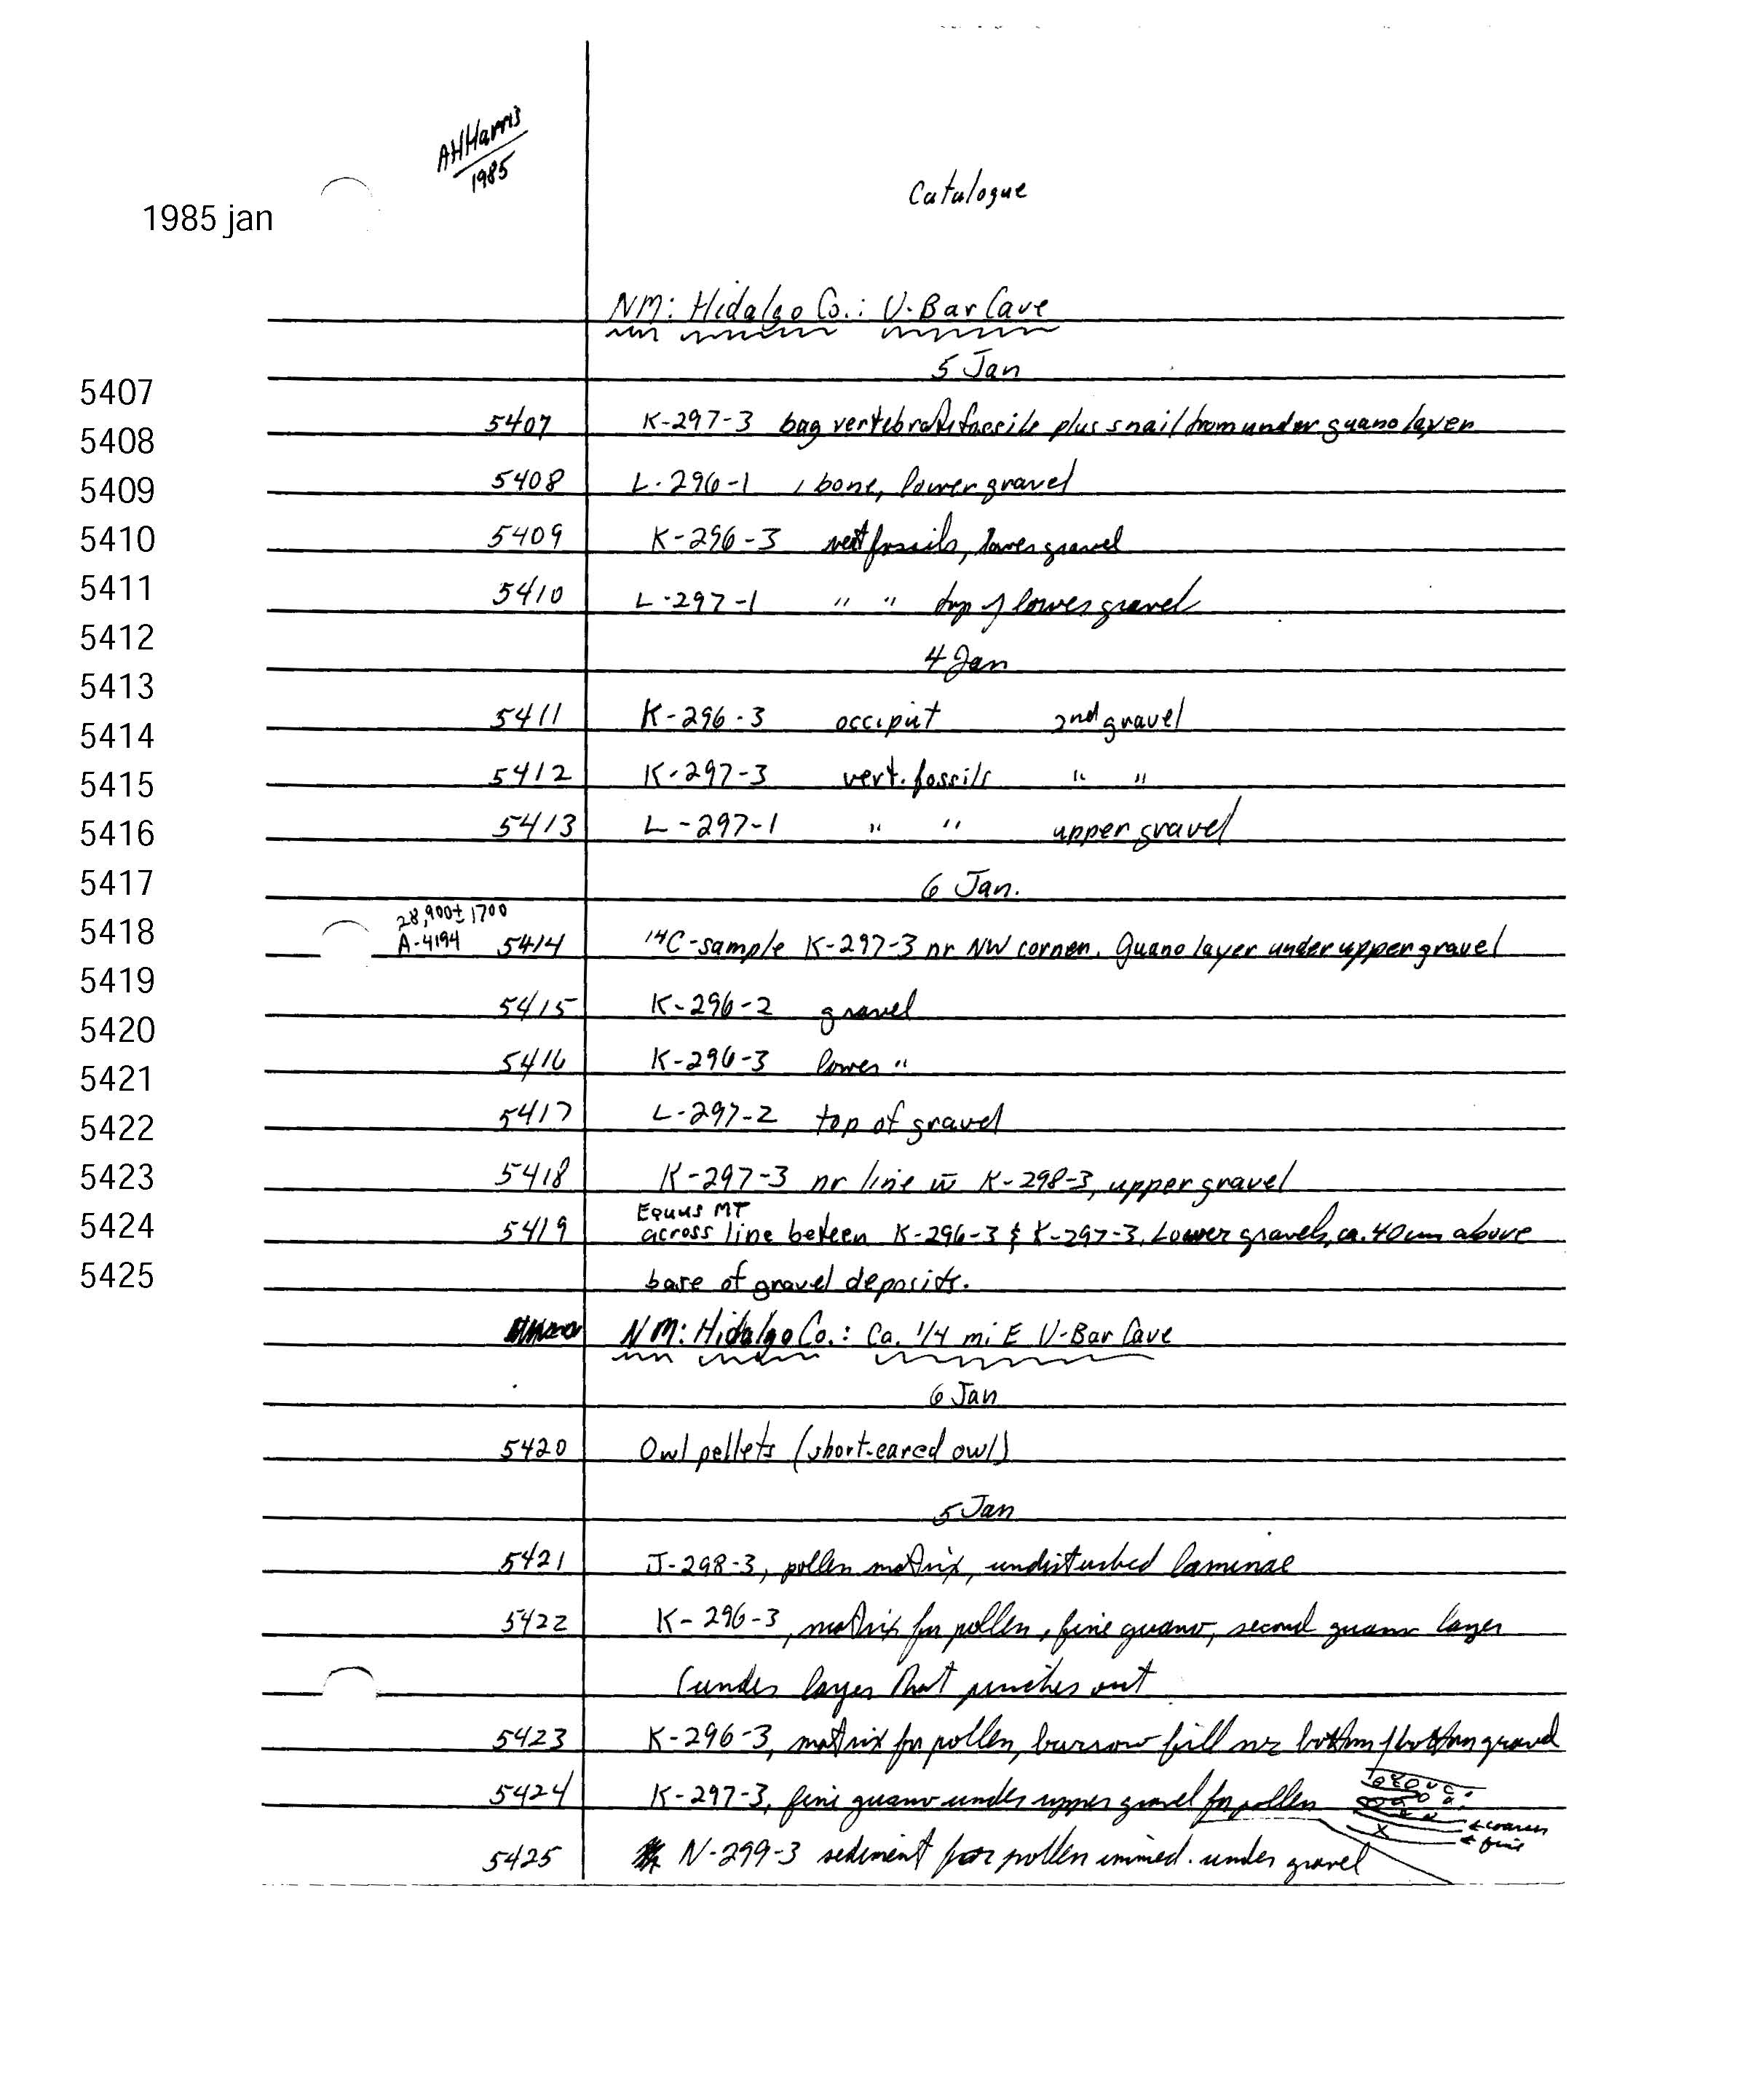 AHHarris
1985
1985 jan
Catalogue
NM: Hidalgo Co.: U-Bar Cave
5 Jan
5407
5408
5409
5410
5411
5412
5413
5414
5415
5416
5417
5418
5419
5420
5421
5422
5423
5424
5425
5407 K-297-3 bag vertebrate fossils plus snail from under guano layer
5408 L-296-1 1 bone, lower gravel
5409 K-296-3 vert fossils, lower gravel
5410 L-297-1 " " top of lower gravel
4 Jan
5411 K-296-3 occiput 2nd gravel
5412 K-297-3 vert. fossils " "
5413 L-297-1 " " upper gravel
6 Jan.
28,900± 1700
A-4194 5414 14C-sample K-297-3 nr NW corner. Guano layer under upper gravel
5415 K-296-2 gravel
5416 K-296-3 lower "
5417 L-297-2 top of gravel
5418 K-297-3 nr line w̄ K-298-3, upper gravel
Equus MT
5419 across line beteen K-296-3 & K-297-3. Lower gravels, ca. 40 cm above
base of gravel deposits.
NM: Hidalgo Co.: Ca. 1/4 mi E U-Bar Cave
6 Jan
5420 Owl pellets (short-eared owl)
5 Jan
5421 J-298-3, pollen matrix, undisturbed laminae
5422 K-296-3, matrix for pollen, fine guano, second guano layer
(under layer that pinches out
5423 K-296-3, matrix for pollen, burrow fill nr bottom of bottom gravel
5424 K-297-3, fine guano under upper gravel for pollen
x
← coarser
← fine
5425 N-299-3 sediment for pollen immed. under gravel